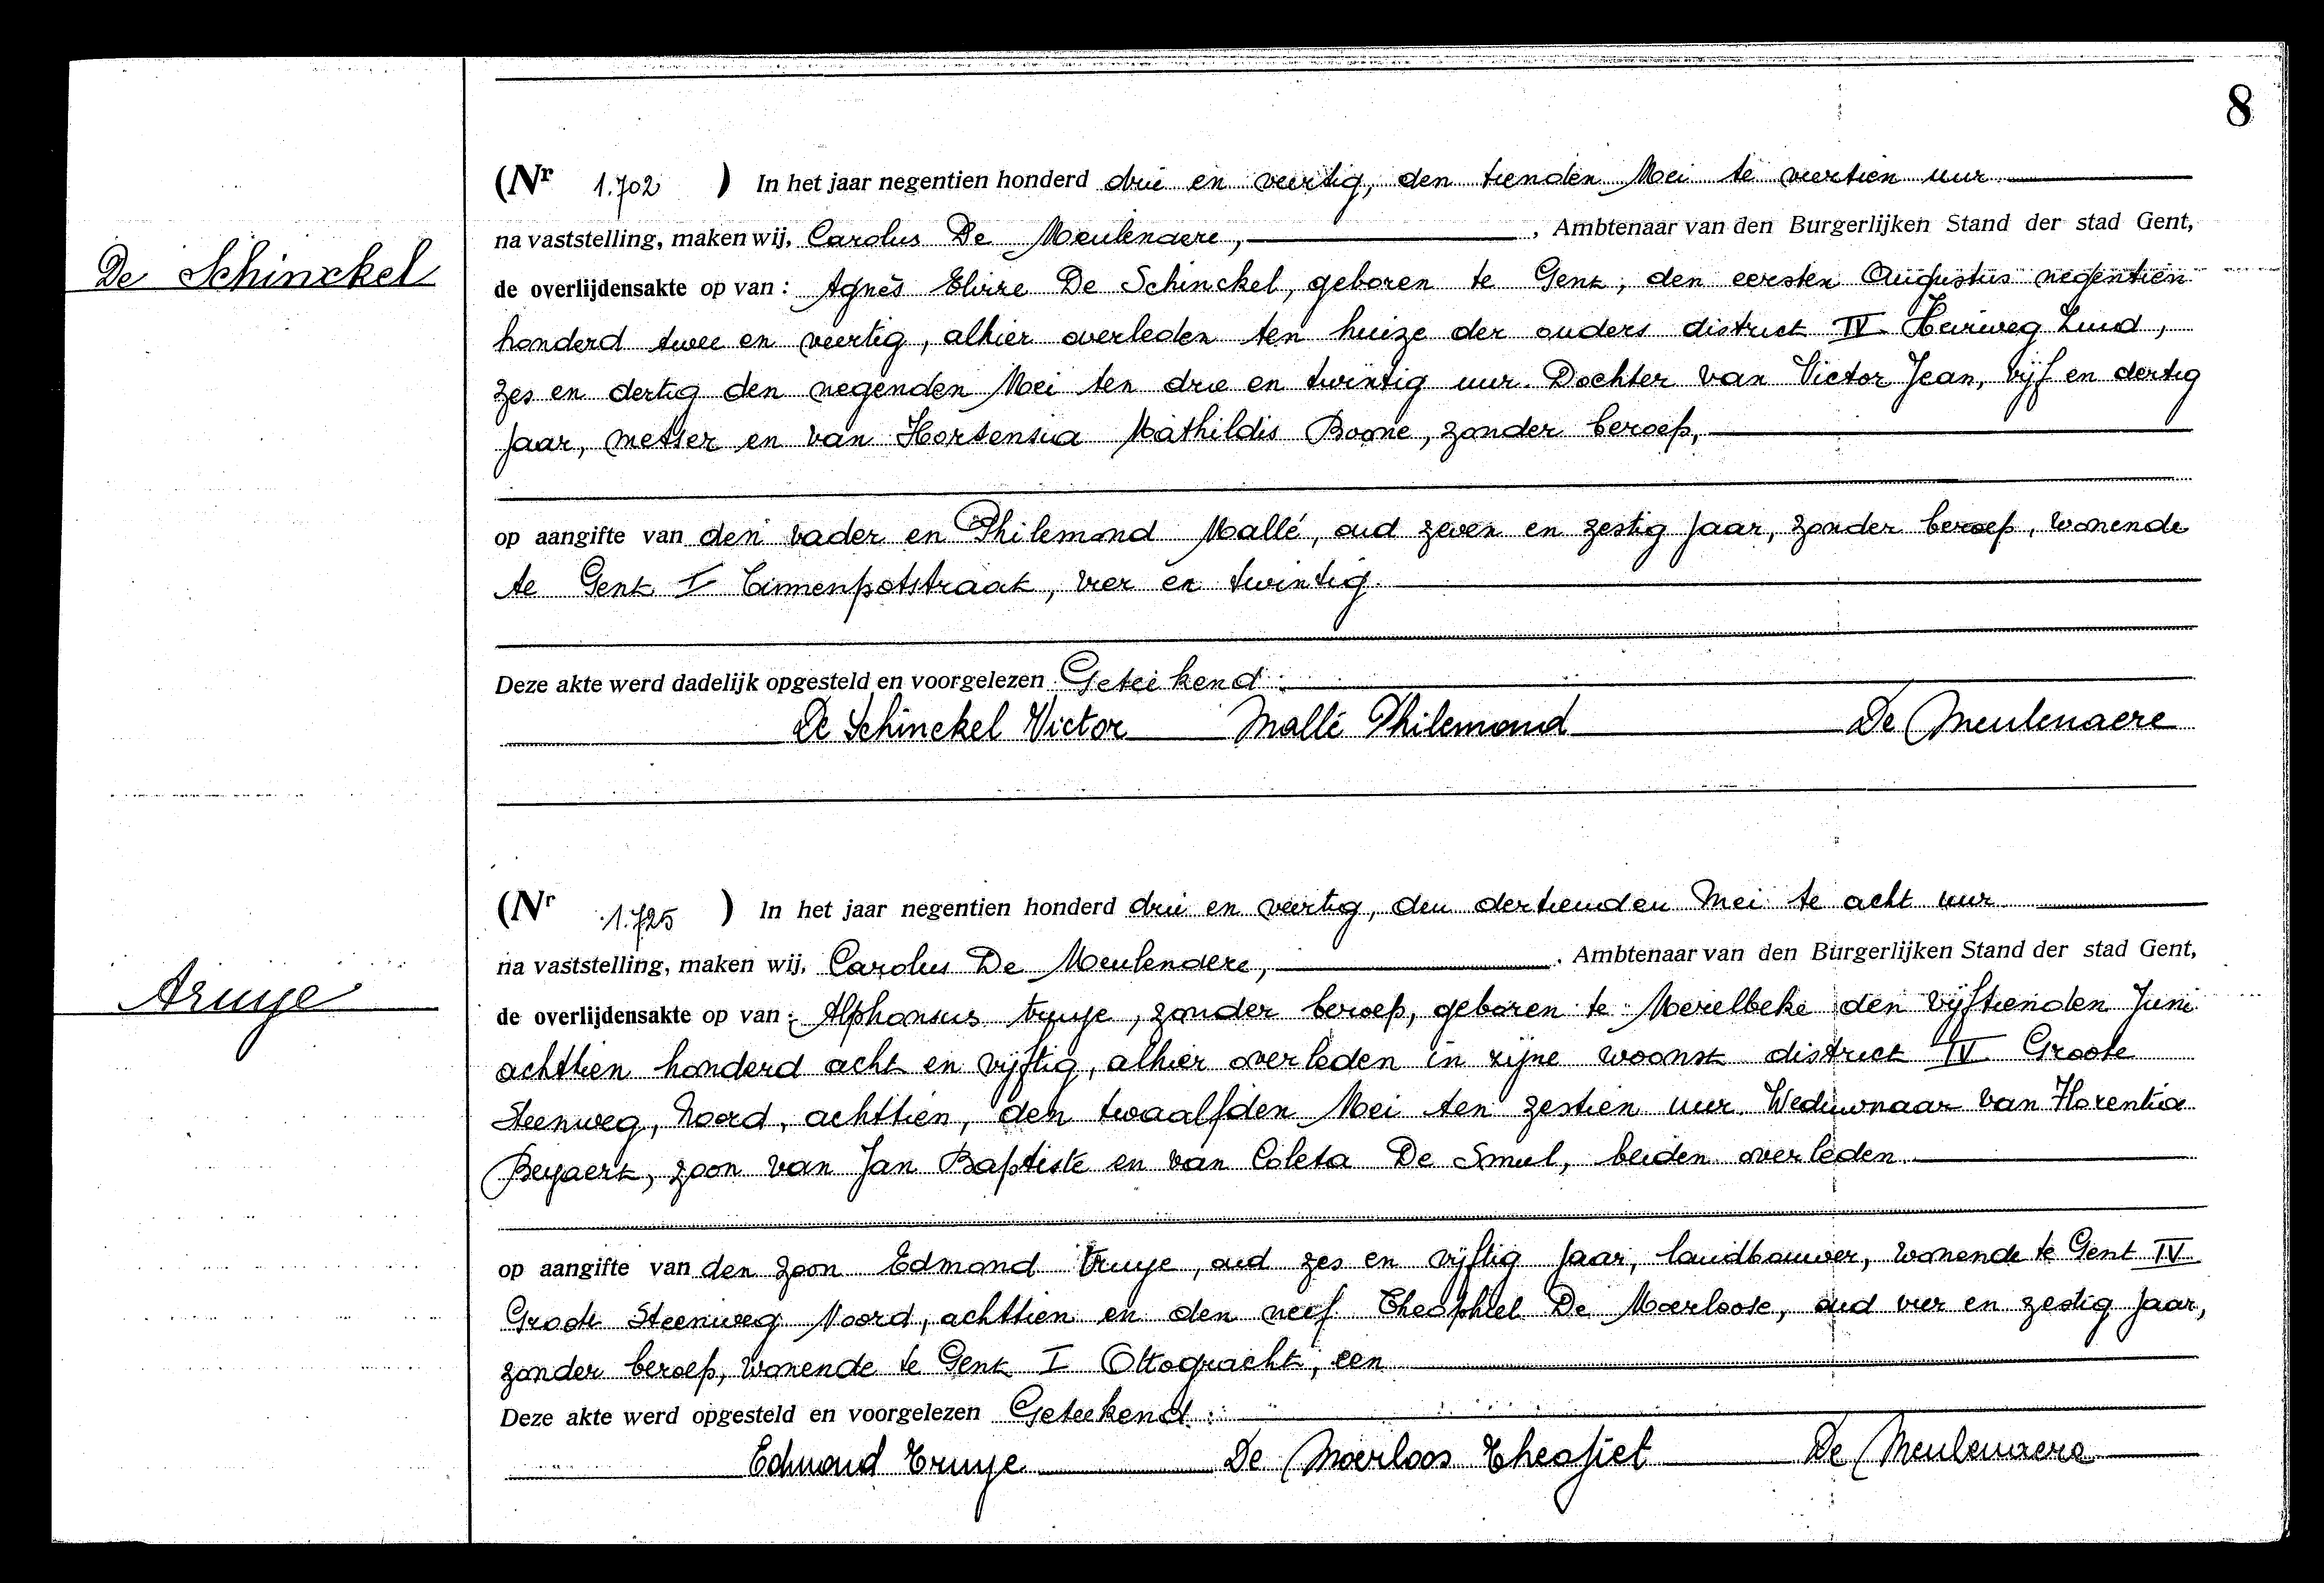 8
(Nr 1.702 ) In het jaar negentien honderd drie en veertig, den tienden Mei te veertien uur
na vaststelling, maken wij, Carolus De Meulenaere, , Ambtenaar van den Burgerlijken Stand der stad Gent,
De Schinckel
de overlijdensakte op van : Agnès De Schinckel, geboren te Gent, den eersten Augustus negentien
honderd twee en veertig, alhier overleden ten huize der ouders district IV Heirweg Zuid,
zes en dertig den negenden Mei ten drie en twintig uur. Dochter van Victor Jean, vijf en dertig
jaar, metser en van Hortensia Mathildis Boone, zonder beroep,
op aangifte van den vader en Philemond Mallé, oud zeven en zestig jaar, zonder beroep, wonende
te Gent I Tinnenpotstraat, vier en twintig.
Deze akte werd dadelijk opgesteld en voorgelezen Geteekend :
De Schinckel Victor Mallé Philemond De Meulenaere
(Nr 1.725 ) In het jaar negentien honderd drie en veertig, den dertienden Mei te acht uur
na vaststelling, maken wij, Carolus De Meulenaere, , Ambtenaar van den Burgerlijken Stand der stad Gent,
Truye
de overlijdensakte op van : Alphonsus Truye, zonder beroep, geboren te Merelbeke den vijftienden Juni
achttien honderd acht en vijftig, alhier overleden in zijne woonst district IV Groote
Steenweg, Noord, achttien, den twaalfden Mei ten zestien uur. Weduwnaar van Florentia
Beyaert, zoon van Jan Baptiste en van Coleta De Smul, beiden overleden.
op aangifte van den zoon Edmond Truye, oud zes en vijftig jaar, landbouwer, wonende te Gent IV
Groote Steenweg Noord, achttien en den neef Theophiel De Moerloose, oud vier en zestig jaar,
zonder beroep, wonende te Gent I Ottogracht, een
Deze akte werd opgesteld en voorgelezen Geteekend :
Edmond Truye De Moerloos Theofiel De Meulenaere